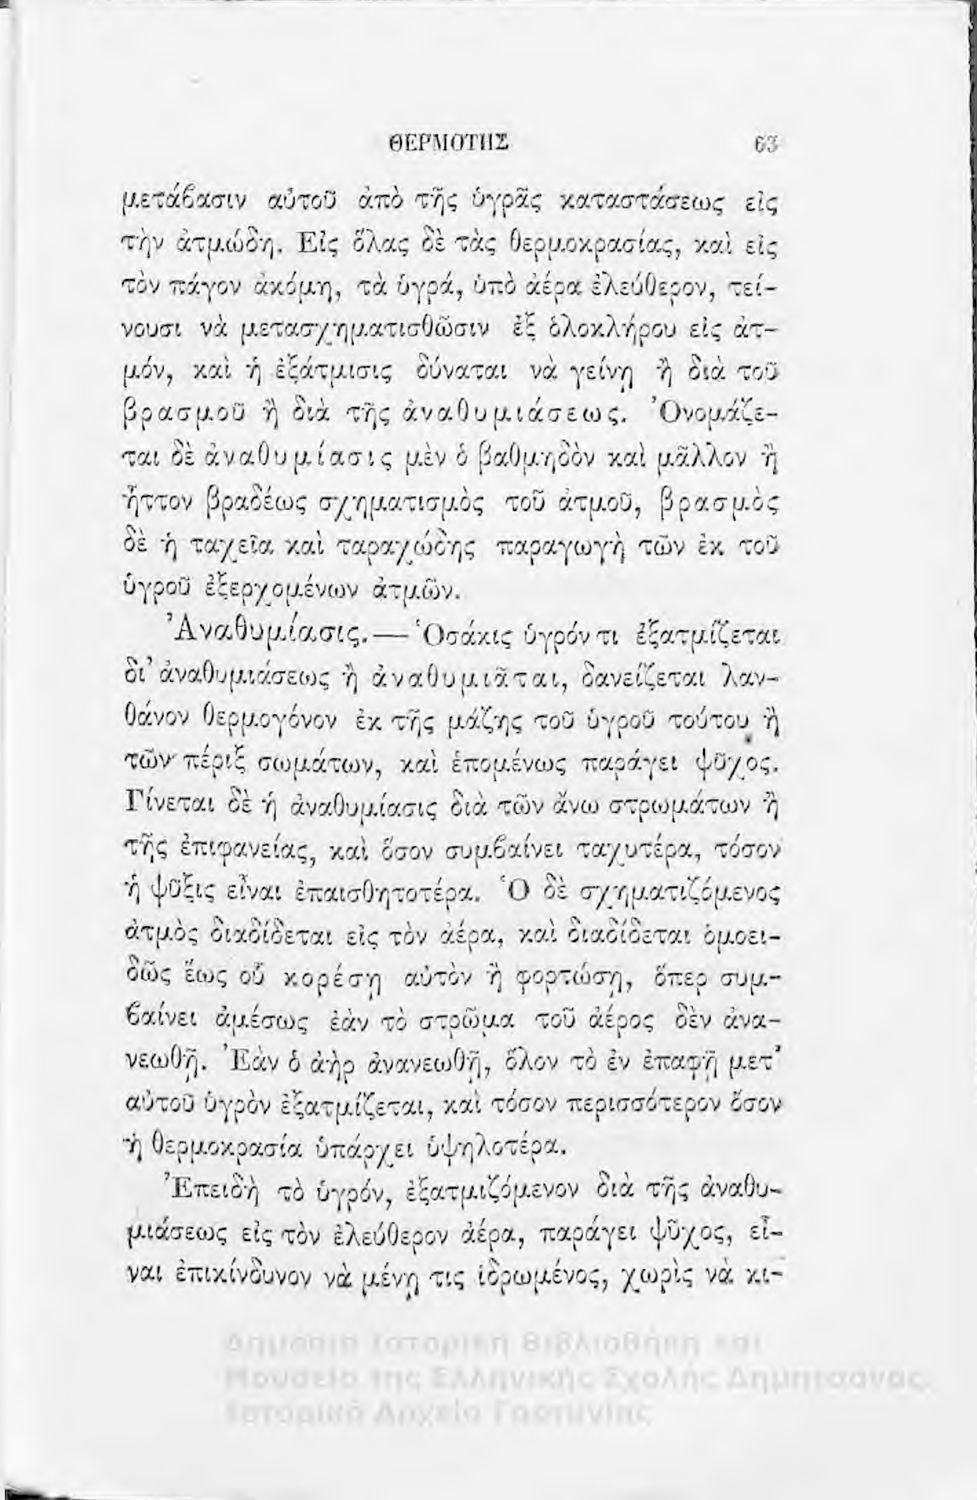 ΘΕΡΜΟΤΗΣ 63
μετάβασιν αὐτοῦ ἀπὸ τῆς ὑγρᾶς καταστάσεως εἰς
τὴν ἀτμώδη. Εἰς ὅλας δὲ τὰς θερμοκρασίας, καὶ εἰς
τὸν πάγον ἀκόμη, τὰ ὑγρά, ὑπὸ ἀέρα ἐλεύθερον, τεί-
νουσι νὰ μετασχηματισθῶσιν ἐξ ὁλοκλήρου εἰς ἀτ-
μόν, καὶ ἡ ἐξάτμισις δύναται νὰ γείνῃ ἢ διὰ τοῦ
βρασμοῦ ἢ διὰ τῆς ἀναθυμιάσεως. Ὀνομάζε-
ται δὲ ἀναθυμίασις μὲν ὁ βαθμηδὸν καὶ μᾶλλον ἢ
ἧττον βραδέως σχηματισμὸς τοῦ ἀτμοῦ, βρασμὸς
δὲ ἡ ταχεῖα καὶ ταραχώδης παραγωγὴ τῶν ἐκ τοῦ
ὑγροῦ ἐξερχομένων ἀτμῶν.
Ἀναθυμίασις.— Ὁσάκις ὑγρόν τι ἐξατμίζεται
δι' ἀναθυμιάσεως ἢ ἀναθυμιᾶται, δανείζεται λαν-
θάνον θερμογόνον ἐκ τῆς μάζης τοῦ ὑγροῦ τούτου ἢ
τῶν πέριξ σωμάτων, καὶ ἑπομένως παράγει ψῦχος.
Γίνεται δὲ ἡ ἀναθυμίασις διὰ τῶν ἄνω στρωμάτων ἢ
τῆς ἐπιφανείας, καὶ ὅσον συμβαίνει ταχυτέρα, τόσον
ἡ ψῦξις εἶναι ἐπαισθητοτέρα. Ὁ δὲ σχηματιζόμενος
ἀτμὸς διαδίδεται εἰς τὸν ἀέρα, καὶ διαδίδεται ὁμοει-
δῶς ἕως οὗ κορέσῃ αὐτὸν ἢ φορτώσῃ, ὅπερ συμ-
βαίνει ἀμέσως ἐὰν τὸ στρῶμα τοῦ ἀέρος δὲν ἀνα-
νεωθῇ. Ἐὰν ὁ ἀὴρ ἀνανεωθῇ, ὅλον τὸ ἐν ἐπαφῇ μετ'
αὐτοῦ ὑγρὸν ἐξατμίζεται, καὶ τόσον περισσότερον ὅσον
ἡ θερμοκρασία ὑπάρχει ὑψηλοτέρα.
Ἐπειδὴ τὸ ὑγρόν, ἐξατμιζόμενον διὰ τῆς ἀναθυ-
μιάσεως εἰς τὸν ἐλεύθερον ἀέρα, παράγει ψῦχος, εἶ-
ναι ἐπικίνδυνον νὰ μένῃ τις ἱδρωμένος, χωρὶς νὰ κι-
Δημόσια Ιστορική Βιβλιοθήκη και
Μουσείο της Ελληνικής Σχολής Δημητσάνας.
Ιστορικό Αρχείο Γορτυνίας